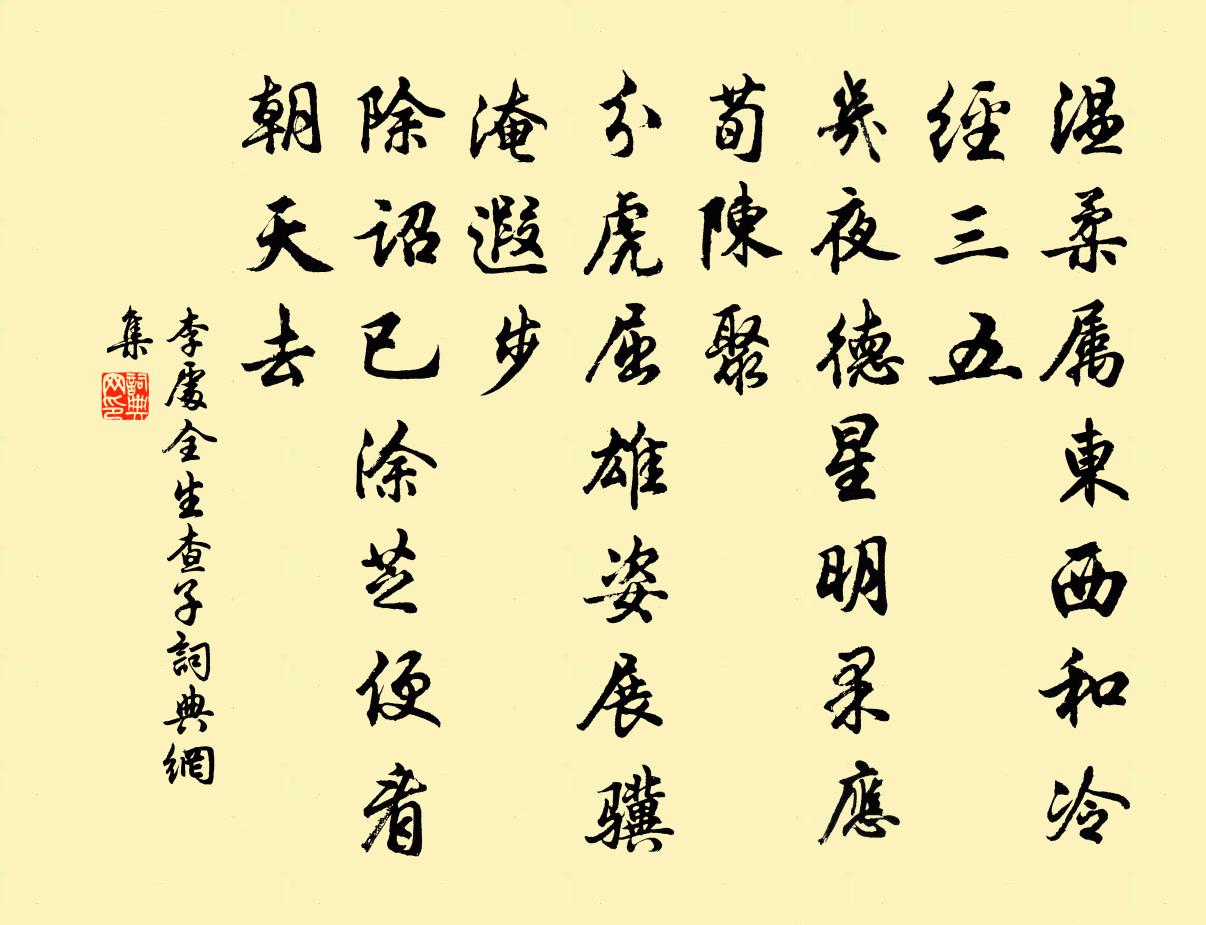 温柔属東西和冷
經三五
幾夜德星明果應
荀陳聚
分虎屈雄姿展驥
淹遐步
除詔已涂芝便看
朝天去
李處全生查子詞典網
集
詞典网印